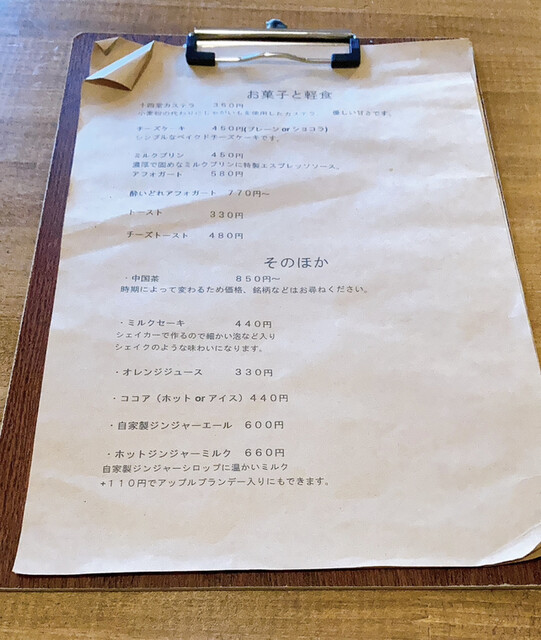 お菓子と軽食
カステラ 350円
小麦粉の代わりにじゃがいもを使用したカステラ 優しい甘さです。
チーズケーキ 450円(プレーン or ショコラ)
シンプルなベイクドチーズケーキです。
ミルクプリン 450円
濃厚で固めなミルクプリンに特製エスプレッソソース。
アフォガート 580円
酔いどれアフォガート 770円～
トースト 330円
チーズトースト 480円
そのほか
・中国茶 850円～
時期によって変わるため価格、銘柄などはお尋ねください。
・ミルクセーキ 440円
シェイカーで作るので細かい泡など入り
シェイクのような味わいになります。
・オレンジジュース 330円
・ココア（ホット or アイス）440円
・自家製ジンジャーエール 600円
・ホットジンジャーミルク 660円
自家製ジンジャーシロップに温かいミルク
+110円でアップルブランデー入りにもできます。